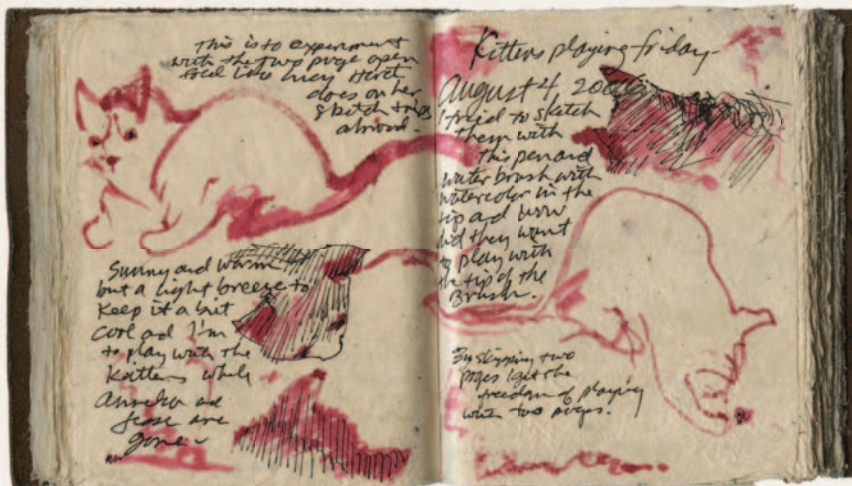 This is to experiment
with the two page open
feel like
does on her
sketch trips
abroad.
Sunny and warm
but a light breeze to
keep it a bit
cool ad I'm
to play with the
kittens while
Annelia ad
Jesse are
gone
Kittens playing friday
August 4, 200
I tried to sketch
them with
this pen and
water brush with
watercolor in the
tip ad wow
did they want
to play with
the tip of the
Brush.
By skipping two
pages I get the
freedom of playing
with two pages.